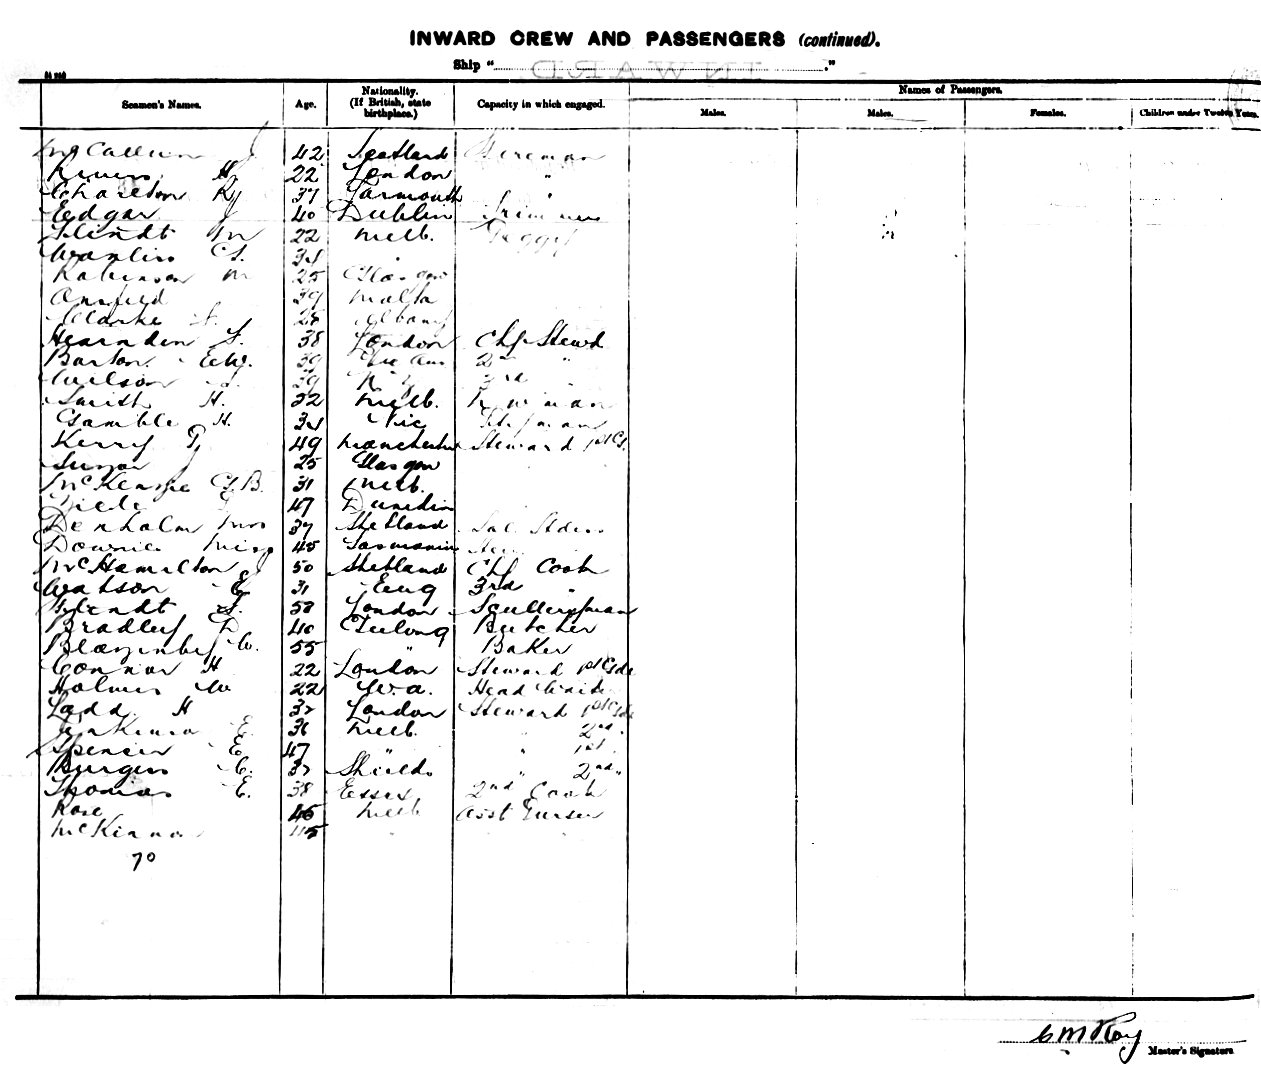 INWARD CREW AND PASSENGERS (continued).
Ship "
Names of Passengers.
Seamen's Names. Age. Nationality. (If British, state birthplace.) Capacity in which engaged. Males. Males. Females. Children under Twelve Years.
McCallum J 42 Scotland Fireman
H 22 London "
Charlton R 37 Yarmouth "
Edgar J 40 Dublin Trimmer
Flindt M 22 Melb. Peggy
34 "
Robinson M 25 Glasgow
39 Malta
Clarke 28 Albany
Hearnden F. 38 London Chf Stewd
Barton EW. 39 2nd "
Wilson 39 3rd "
Smith H. 22 Melb.
Gamble H. 34 Vic
Kerry P 49 Manchester Steward 1st Cl.
J 25 Glasgow
McKenzie G.B. 31 Melb.
47 Dunedin
Denholm Mrs 37 Shetland
Downie Miss 45 Tasmania
McHamilton J 50 Shetland Chf Cook
Watson E 31 Eng 3rd "
Flindt F. 58 London Sculleryman
Bradley D 40 Geelong Butcher
W. 55 " Baker
Connor H 22 London Steward 1st Cl
Holmes W 22 W.a. Head Waiter
Ladd H 32 London Steward 1st Cl
E. 36 Melb. " 2nd "
Spencer E. 47 " " 1st "
Burgess C. 32 Shields " 2nd "
Thomas E. 38 Essex 2nd Cook
Rose 46 Melb Asst Purser
McKinnon "
70
Master's Signature